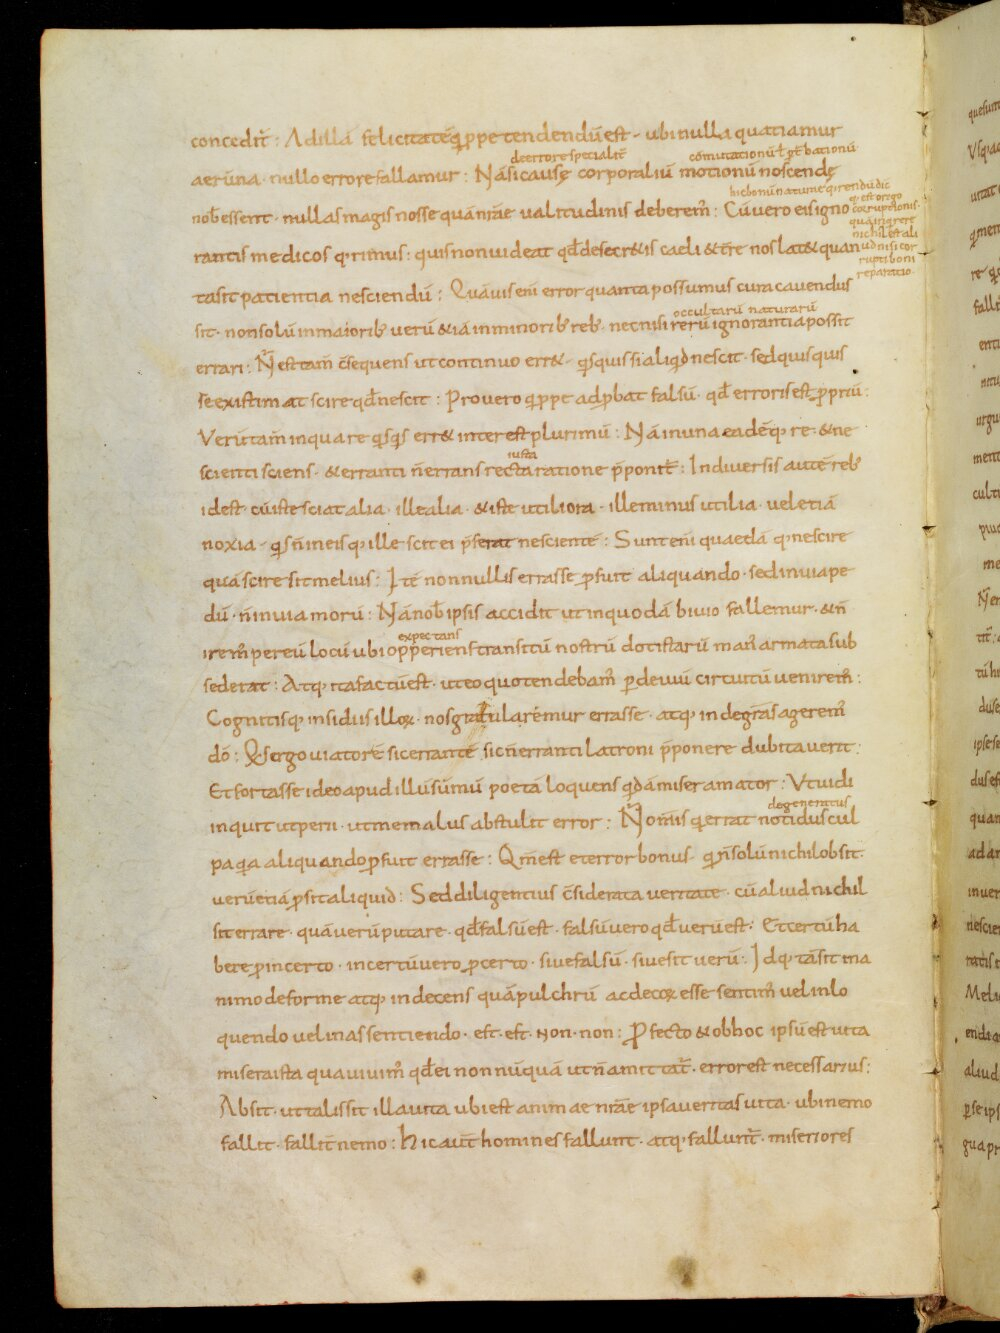 concedit̄ : Ad illā felicitatē q̄ppe tendendū est · ubi nulla quatiamur
de errore specialit̄ com̄utationū ł ꝑt̄bationū
aerūna · nullo errore fallamur : Nā si causę corporaliū motionū noscendę
nob̄ essent · nullas magis nosse quā nr̄ae ualitudinis deberem̄ : Cū uero eis igno
hic bonū naturae
corruptionis
nichil est ali
ud nisi cor
rupti boni
reparatio·
rantis medicos q̄rimus : quis non uideat qđ de secr&is caeli & t̄re nos lat& quan
ta sit patientia nesciendū : Quāuis enī error quanta possumus cura cauendus
occultarū naturarū
sit · non solū in maiorib; uerū &iā in minorib; reb; · nec nisi rerū ignorantia possit
errari : N̄ est tam̄ c̄sequens ut continuo err& · q̄squis si aliq̄d nescit · sed quisquis
se existimat scire qđ nescit : Pro uero q̄ppe adꝓbat falsū · qđ erroris est ꝓpriū :
Verūtam̄ in qua re q̄sq̄s err& interest plurimū : Nā in una eadēq; re · & ne
iusta
scienti sciens · & erranti n̄ errans recta ratione p̄ponit̄ : In diuersis autē reb;
id est · cū iste sciat alia · ille alia · & iste utiliora · ille minus utilia · uel etiā
noxia · q̄s n̄ in eis q; ille scit ei p̄ferat nescientē : Sunt enī quaedā q; nescire
quā scire sit melius : Itē nonnullis errasse ꝓfuit aliquando · sed in uia pe
dū · n̄ in uia morū : Nā nob̄ ipsis accidit ut in quodā biuio fallemur · & n̄
expectans
irem̄ per eū locū ubi opperiens transitū nostrū dotistarū man̄ armata sub
sederat : Atq; ita factū est · ut eo quo tendebam̄ ꝑ deuiū circuitū uenirem̄ :
Cognitisq; insidiis illoꝝ · nos gratularemur errasse · atq; inde gr̄as agerem̄
dō : Q̄s ergo uiatorē sic errantē sic n̄ erranti latroni p̄ponere dubitauerit :
Et fortasse ideo apud illū sūmū poetā loquens q̄dā miser amator : Vt uidi
degeneratus
inquit ut perii · ut me malus abstulit error : N̄ om̄is q̄ errat
pa q̄a aliquando ꝓfuit errasse : Qm̄ est et error bonus · q̄ n̄ solū nichil obsit ·
uerū etiā ꝓsit aliquid : Sed diligentius c̄siderata ueritate · cū aliud nichil
sit errare · quā uerū putare · qđ falsū est · falsū uero qđ uerū est · Et certū ha
bere ꝓ incerto · incertū uero ꝓ certo · siue falsū · siue sit uerū : Idq; tā sit in a
nimo deforme atq; indecens quā pulchrū ac decoꝝ esse sentim̄ uel in lo
quendo uel in assentiendo · est · est · non · non : Ꝓfecto & ob hoc ipsū est uita
misera ista qua uiuim̄ qđ ei nonnūquā ut n̄ amittat̄ · error est necessarius :
Absit · ut talis sit illa uita ubi est animae nr̄ae ipsa ueritas uita · ubi nemo
fallit · fallit̄ nemo : hic aut̄ homines fallunt · atq; fallunt̄ · miseriores